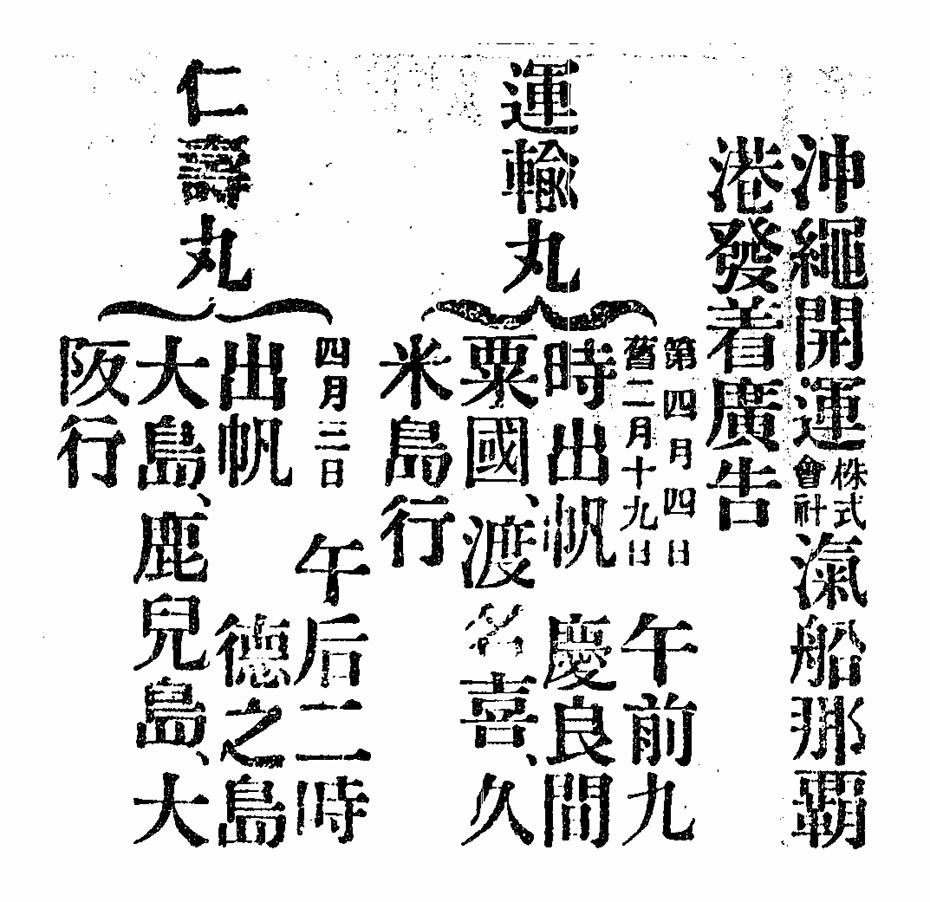 沖繩開運株式會社汽船那覇
港發着廣告
運輸丸
第四月四日
舊二月十九日
午前九
時出帆 慶良間
粟國、渡名喜、久
米島行
仁壽丸
四月三日 午后二時
出帆 德之島
大島、鹿兒島、大
阪行